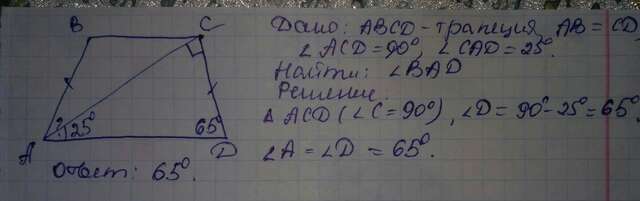 B
C
A
D
?
25°
65°
Ответ: 65°.
Дано: ABCD - трапеция, AB = CD,
∠ACD = 90°, ∠CAD = 25°.
Найти: ∠BAD
Решение.
Δ ACD (∠C = 90°), ∠D = 90°- 25° = 65°
∠A = ∠D = 65°.